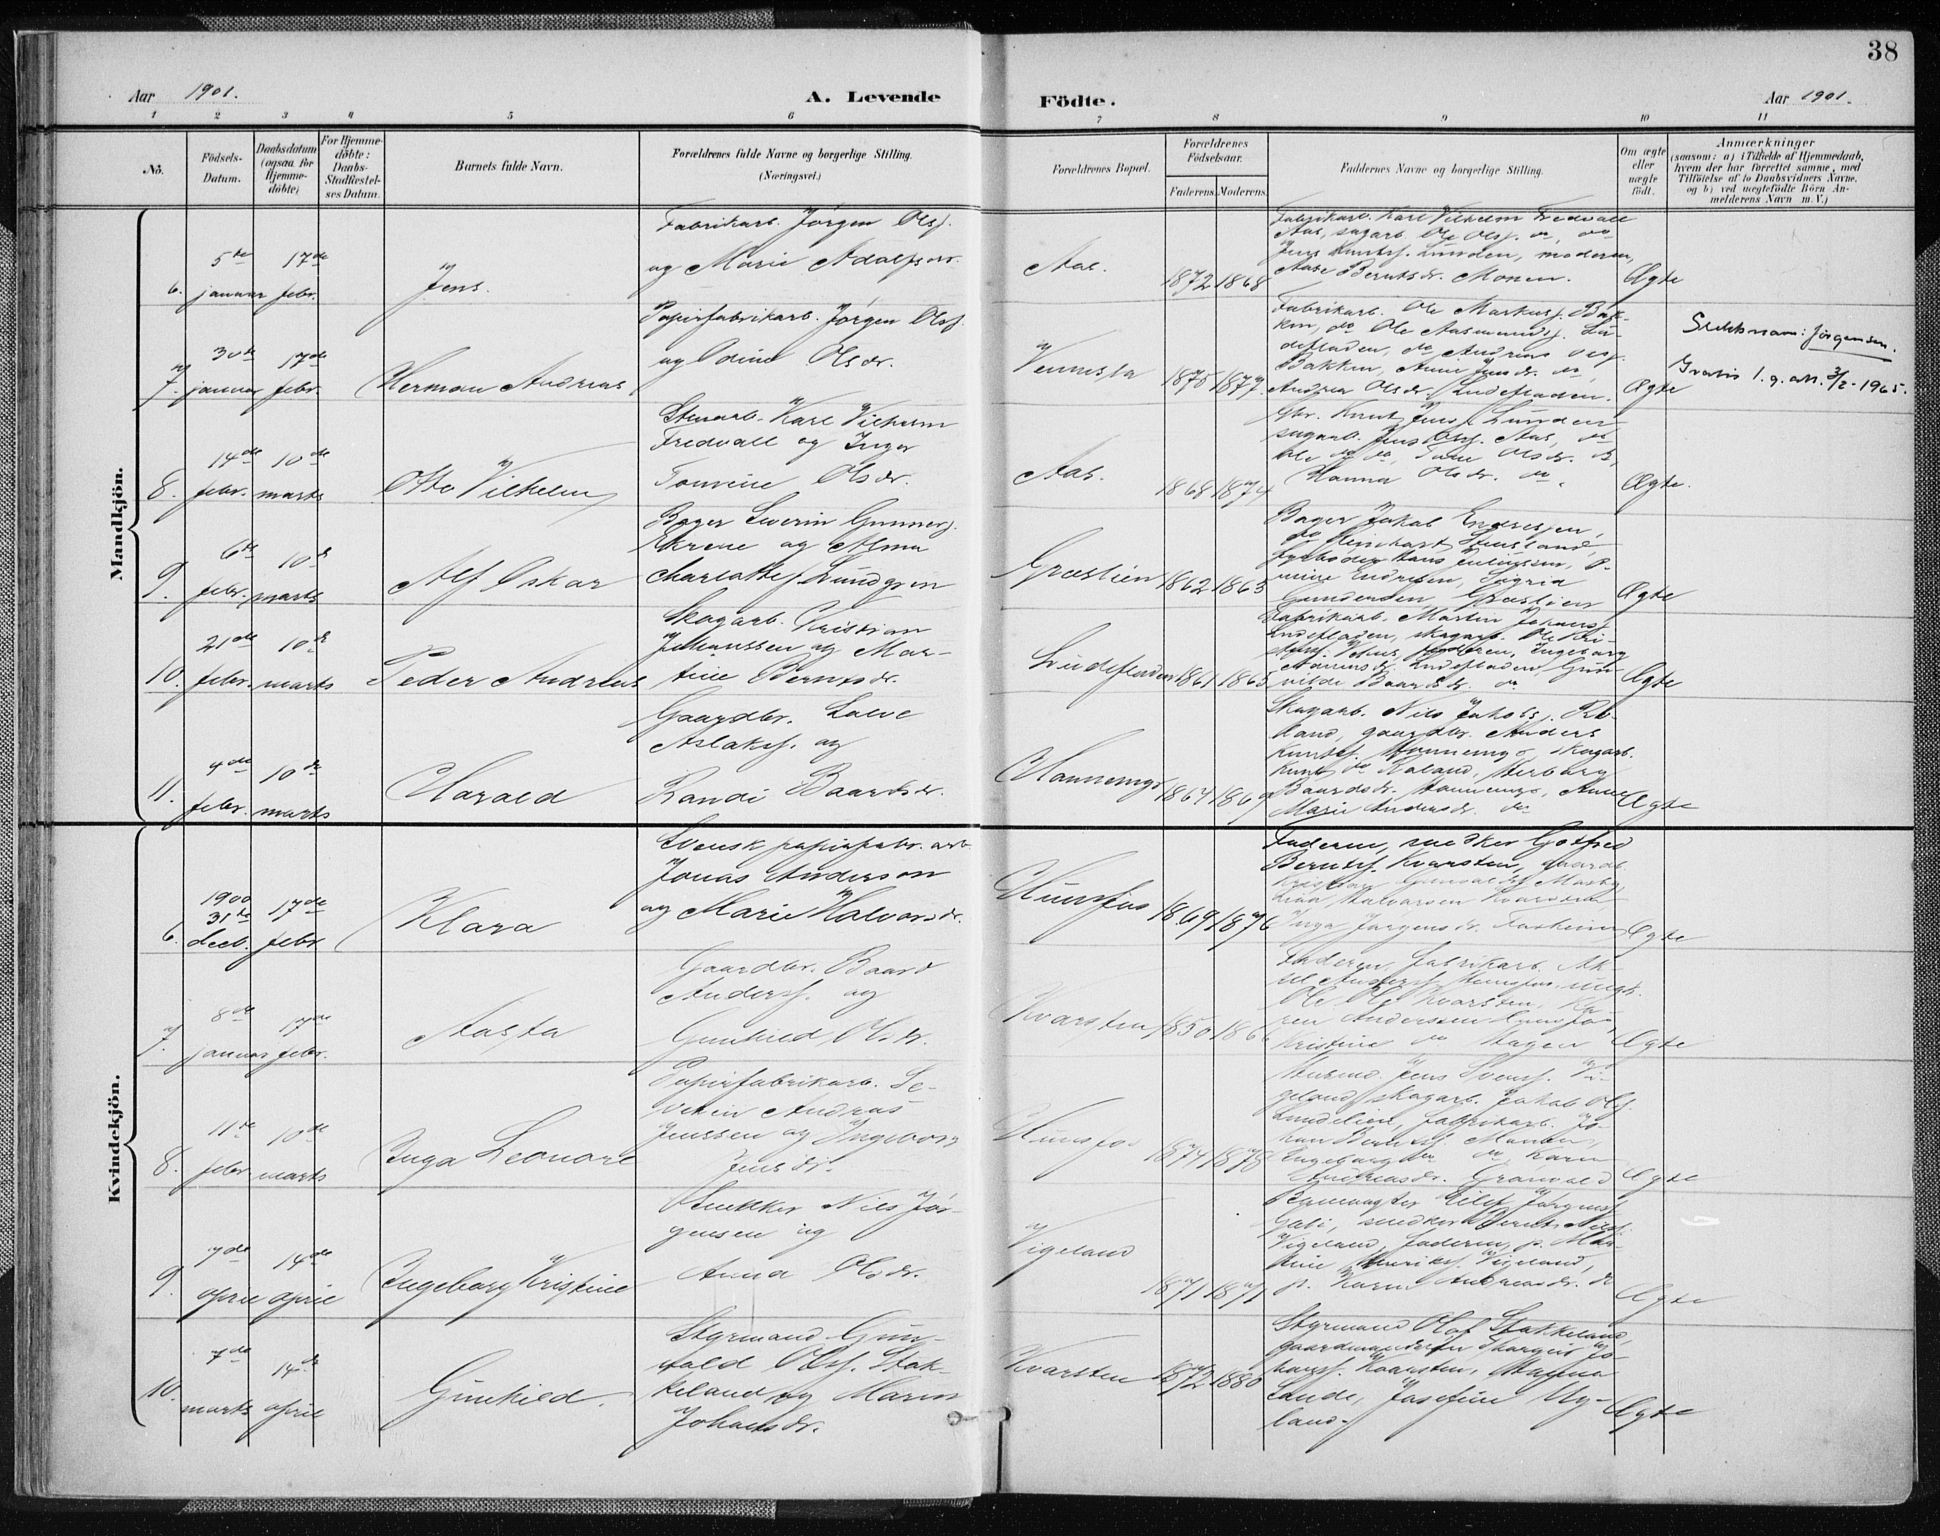 38
Aar 1901.
A. Levende Födte.
Aar 1901.
1 2 3 4 5 6 7 8 9 10 11
No.
Födsels-
Datum.
Daabsdatum
(ogsaa for
Hjemme-
døbte)
For Hjemme-
døbte:
Daabs-
Stadfæstel-
ses Datum.
Barnets fulde Navn.
Forældrenes fulde Navne og borgerlige Stilling.
(Næringsvei.)
Forældrenes Bopæl.
Forældrenes
Födselsaar.
Faderens. Moderens.
Faddernes Navne og borgerlige Stilling.
Om ægte
eller
uægte
födt.
Anmærkninger
(saasom: a) i Tilfælde af Hjemmedaab,
hvem der har forrettet samme, med
Tilföielse af to Daabsvidners Navne,
og b) ved uægtefödte Börn An-
melderens Navn m. V.)
Mandkjön.
6.
5te
januar
17de
febr.
Jens.
Fabrikarb. Jörgen Olsf.
og Marie Adolfsdr.
Aas.
1872 1868
Fabrikarb. Karl Vilhelm Fredvall
Aas, sagarb. Ole Olsf. do, do
Jens Knutsf. Lunden, moderen,
Aase Berntsdr. Monen.
Ægte
7.
30te
januar
17de
febr.
Herman Andreas
Papirfabrikarb. Jörgen Olsf.
og Odine Olsdr.
Vennesla
1875 1877
Fabrikarb. Ole Markusf. Bak-
ken, do Ole Aasmundsf. Lin-
defladen, do Andreas Olsf.
Bakken, Anne Jensdr. do,
Andrea Olsdr. Lindefladen.
Ægte
Slektsnavn: Jørgensen.
Gratis 1. g. att. 3/2-1965.
8.
14de
febr.
10de
marts
Otto Vilhelm
Stenarb. Karl Vilhelm
Fredvall og Inger
Tomine Olsdr.
Aas.
1868 1874
Gbr. Knut Jensf. Lunden
sagarb. Jens Olsf. Aas, do
Ole do do, Tone Olsdr. do,
Hanna Olsdr. do.
Ægte.
9.
6te
febr.
10de
marts
Alf Oskar
Bager Severin Gunnersf.
Ekrene og Alma
Charlotte Lundgren
Græslien
1862 1863
Bager Jakob Endresen,
do Reinhart Stensland,
fyrböder Hans Juliussen,
Endresen, Sigrid
Gundersen Græslien
Ægte
10.
21de
febr.
10de
marts
Peder Andreas
Skogarb. Kristian
Johanssen og Mar-
tine Berntsdr.
Lindefladen
1861 1865
Fabrikarb. Martin Johansf.
Lindefladen, skogarb. Ole Kri-
Ingeborg
Lindefladen, Gun-
vilde Baardsdr. do
Ægte
11.
4de
febr.
10de
marts
Harald
Gaardbr. Salve
Aslaksf. og
Randi Baardsdr.
Honnemyr
1864 1869
Skogarb. Nils Jakobsf. Ro-
land, gaardbr. Anders
Knutsf. Honnemyr, skogarb.
Knut do Roland, Herborg
Baardsdr. Honnemyr, Anne
Marie Andersdr. do
Ægte
Kvindekjön.
6.
1900
31te
decb.
17de
febr
Klara
Svensk papirfabr. arb.
Jonas Anderson
og Marie Halvorsdr.
Hunsfos
1869 1876
Faderen, snedker Gotfred
Berntsf. Kvarsten, gaardb.
Kristian Grønvold Mosby,
Lina Halvorsen Kvarsten
Inga Jörgensdr.
Ægte
7.
8de
januar
17de
febr.
Aasta
Gaardbr. Baard
Andersf. og
Gunhild Olsdr.
Kvarsten
1850 1866
Faderen, fabrikarb. Ak-
sel Andersf. Hunsfos, ungk.
Ole Olsf. Kvarsten, Ka-
ren Anderssen Hunsfos,
Kristine do Hagen
Ægte
8.
11te
febr
10de
marts
Inga Leonore
Papirfabrikarb. Se-
verin Andreas
Jenssen og Ingeborg
Jensdr.
Hunsfos
1874 1878
Husmd. Jens Svensf. Vi-
geland, skogarb. Jakob Olsf.
Lundelien, fabrikarb. Jo-
han Berntsf. Monen,
Ingeborg do do, Karen
Andreasdr. Grønvold
Ægte
9.
7de
april
14de
april
Ingeborg Kristine
Snekker Nils Jör-
gensen og
Anna Olsdr.
Vigeland
1871 1871
Banevogter Eilef Jörgensf.
snedker Bernt Nilsf.
Vigeland, faderen, p. Mar-
tine Henriksf. Vigeland,
p. Karen Andreasdr. do
Ægte
10.
7de
marts
14de
april
Gunhild.
Styrmand Gun-
vald Olsf. Stak-
keland og Maren
Johansdr.
Kvarsten
1872 1880
Styrmand Olaf Stakkeland,
gaardmandssön Thorgeir Jo-
hansf. Kvarsten, Hanna
Lande, Josefine My-
land.
Ægte